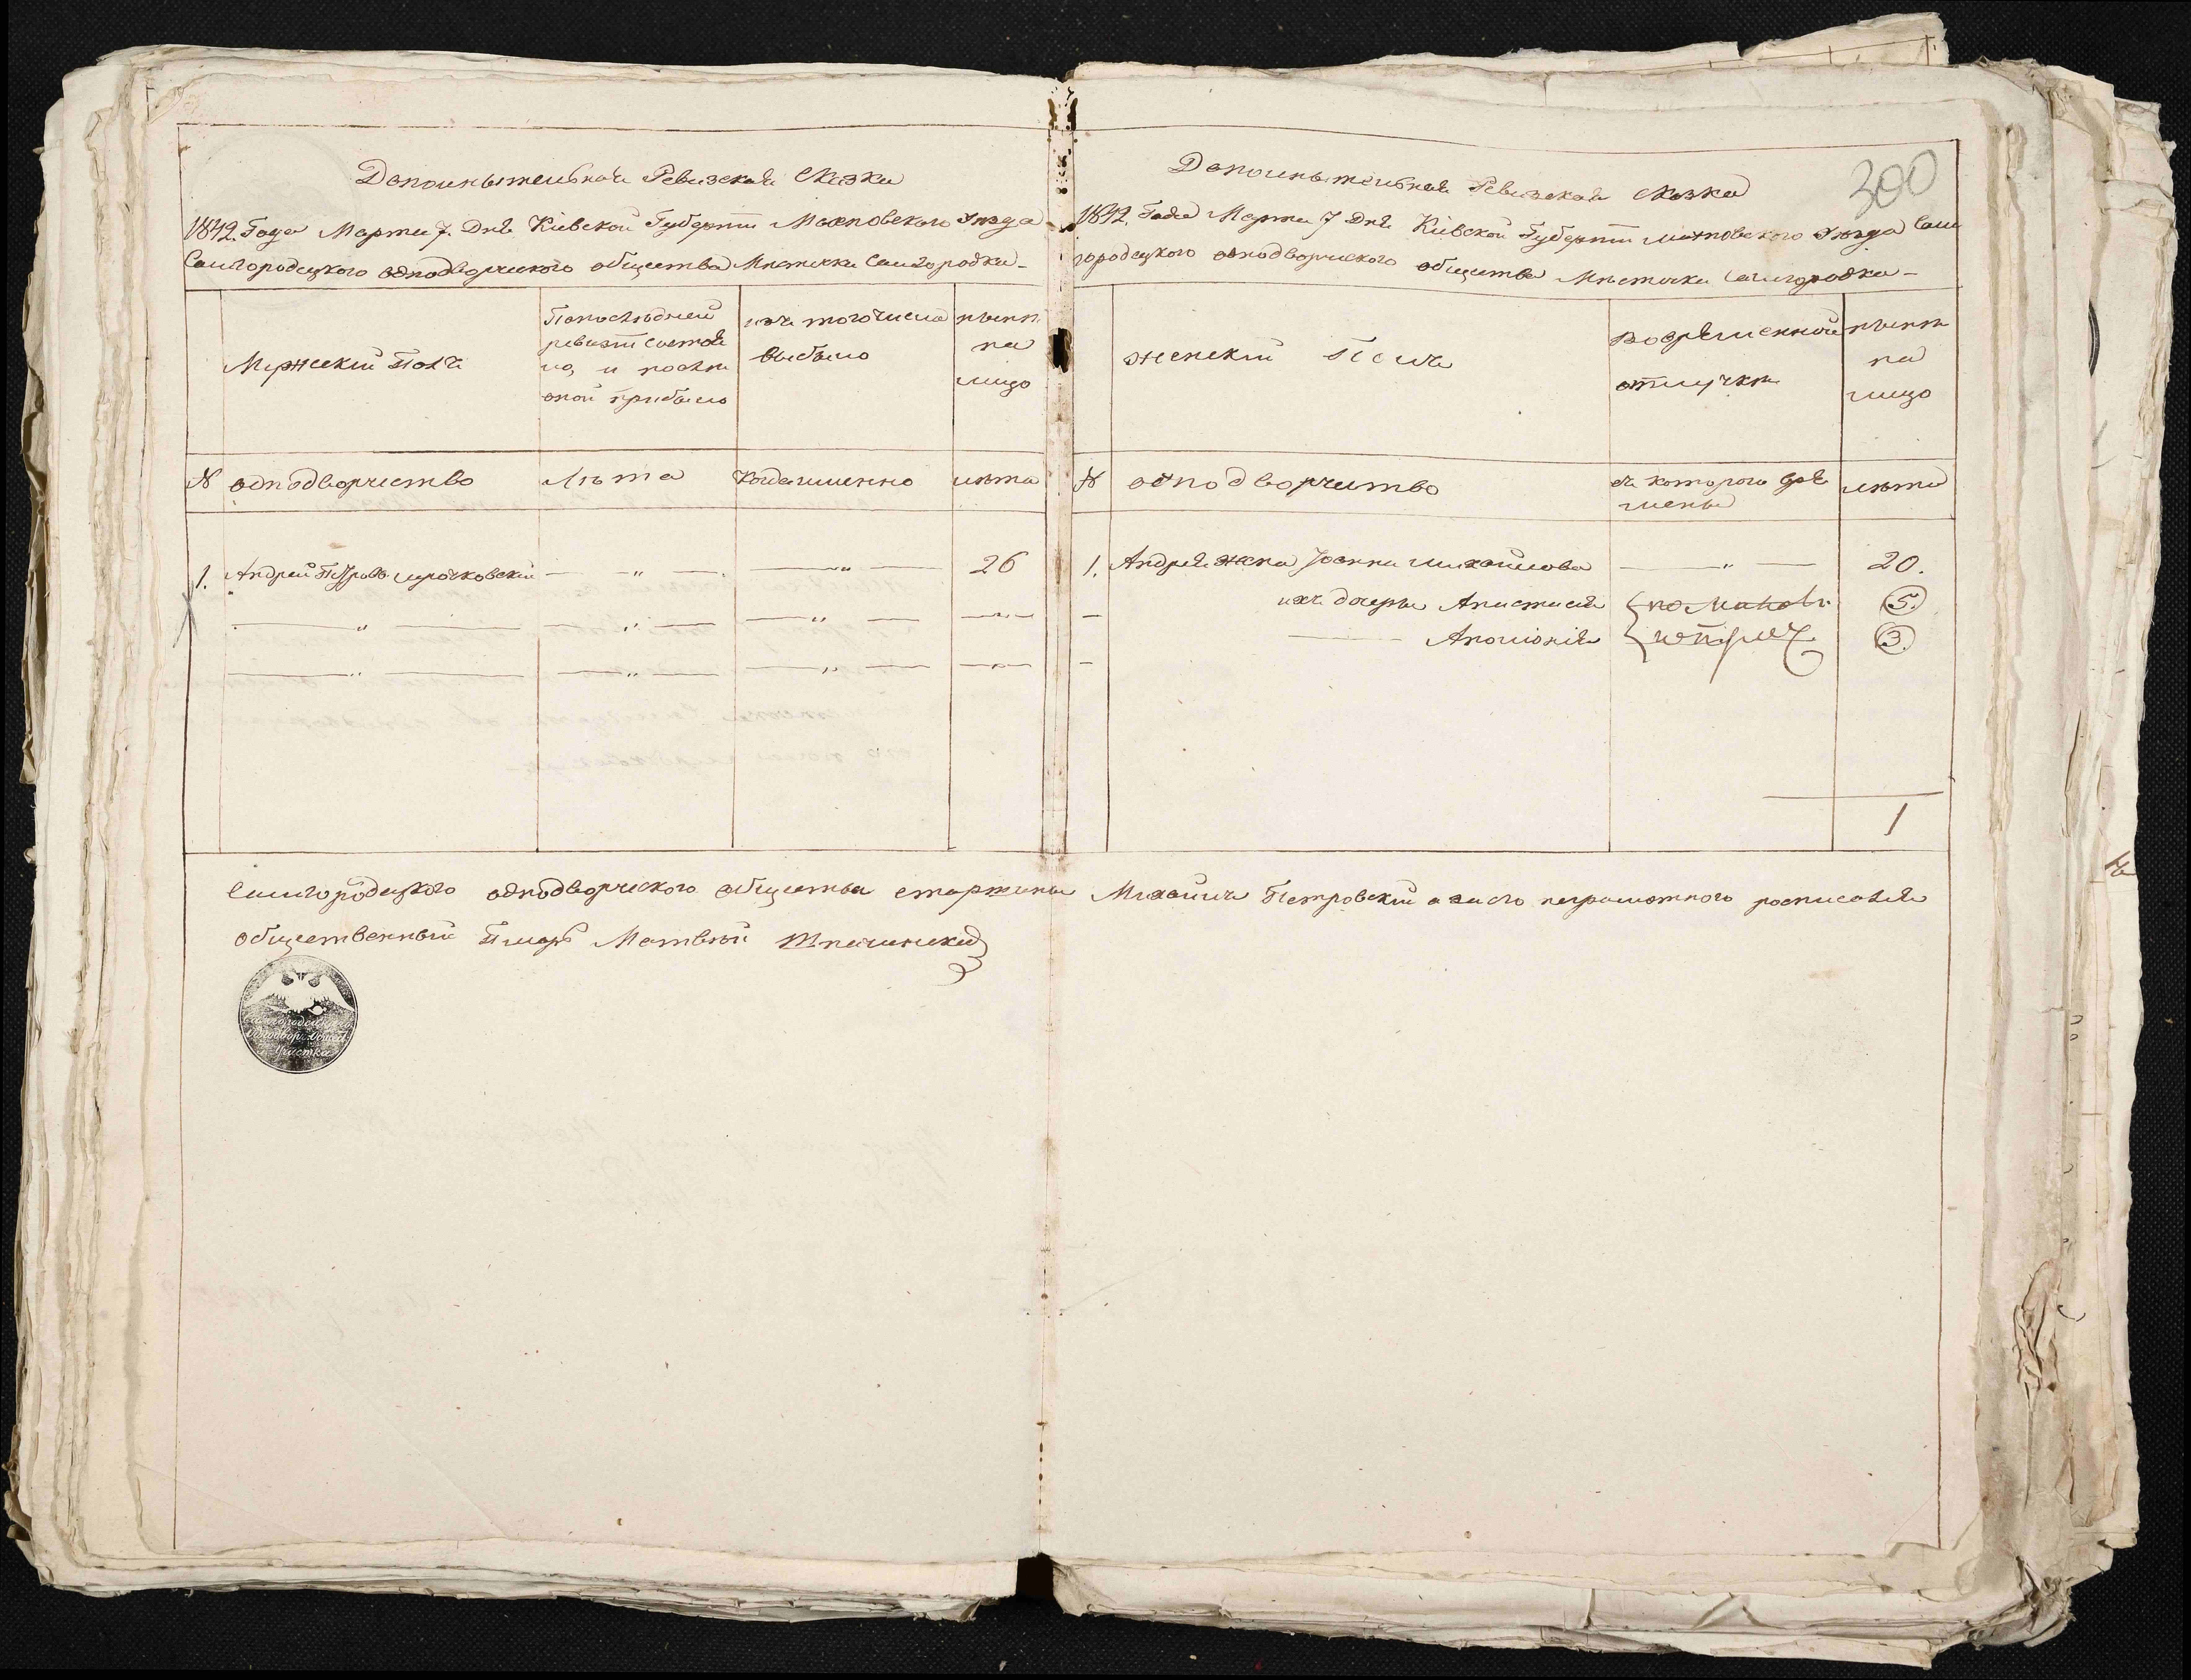 Дополнытельная Ревизская Сказка
1842. Года Марта 7. Дня Кіевской Губерніи Махновскаго Уезда
Самгородецкого однодворческого общества Мѣстечка Самгородка-
Мужескій Полъ
Попослѣдней
ревизіи состоя
ло, и послѣ
оной прибыло
изъ того числа
выбыло
нынѣ
на
лицо
№ однодворчество
лѣта
Когда именно
лѣта
1. Андрей Петровъ 26
Дополнытельная Ревизская Сказка
300
1842. Года Марта 7 Дня Кіевской Губерніи Махновского Уѣзда Сам
городецкого однодворческого общества Мѣстечка Самгородка-
женскій Полъ
Вовременной
отлучкѣ
нынѣ
на
лицо
№ однодворчество
съ которого вре
мены
лѣта
1. Андрея жена Іоанна Михайлова 20.
ихъ дочеры Анастасія 5.
Аполонія 3.
1
Самгородецкого однодворческого общества старшина Михаилъ Петровскій а за его неграмотного росписался
общественный Писарь Матвѣй
Самгородецк
Однодвор. Общест
Участка